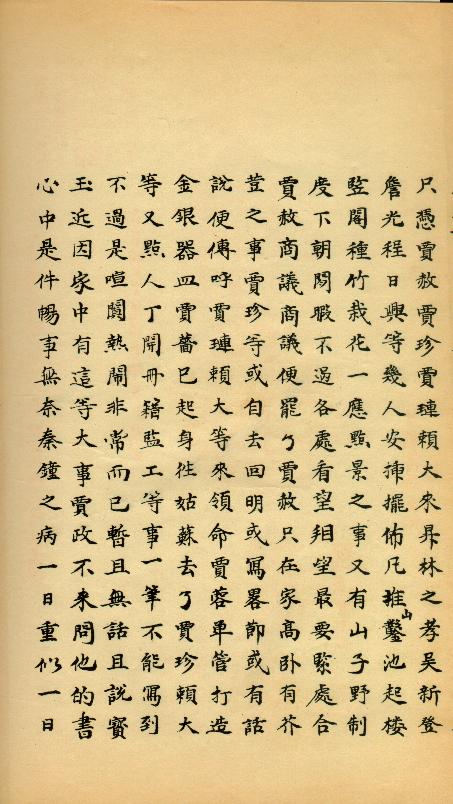 只憑賈赦賈珍賈璉頼大來昇林之孝吳新登
詹光程日興等幾人安揷擺佈凡堆山鑿池起楼
竪閣種竹栽花一應㸃景之事又有山子野制
度下朝閑暇不過各處看望相望最要緊處合
賈赦商議商議便罷了賈赦只在家高卧有芥
荳之事賈珍等或自去回明或寫畧節或有話
說便傳呼賈璉頼大等來領命賈蓉单管打造
金銀器皿賈薔已起身徃姑蘇去了賈珍頼大
等又㸃人丁開冊籍監工等事一筆不能寫到
不過是喧闐熱鬧非常而已暫且無話且說寳
玉近因家中有這等大事賈政不来問他的書
心中是件暢事無奈秦鐘之病一日重似一日